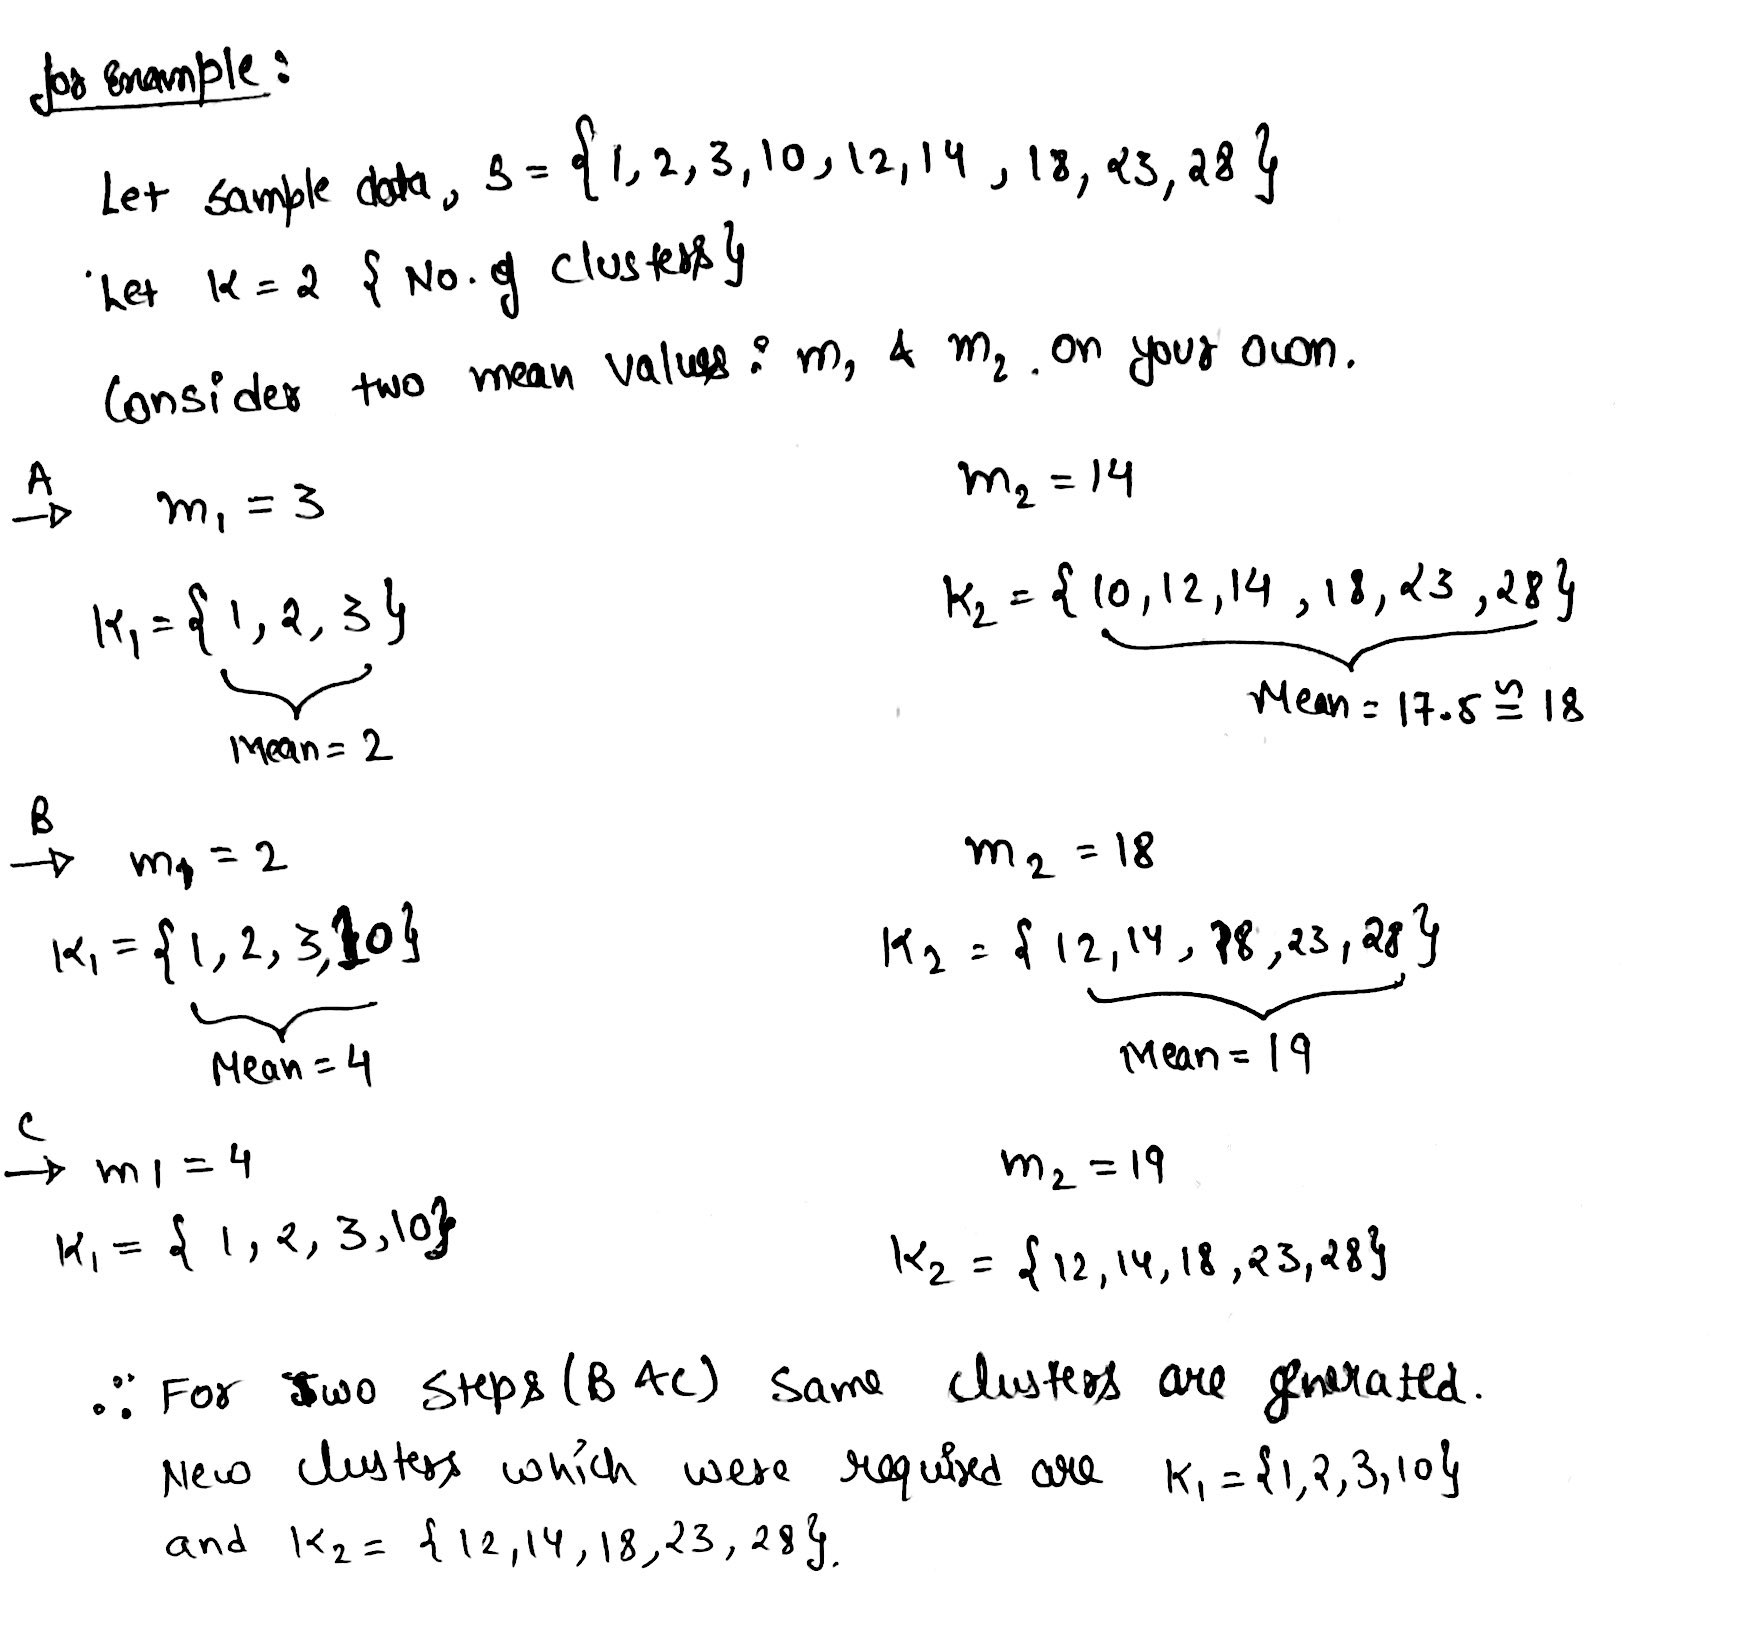 for Example:
Let sample data, S = {1, 2, 3, 10, 12, 14, 18, 23, 28}
Let K = 2 { No. of clusters}
Consider two mean values: m₁ & m₂. on your own.
A → m₁ = 3 m₂ = 14
K₁ = {1, 2, 3} K₂ = {10, 12, 14, 18, 23, 28}
Mean = 2 Mean = 17.5 ≅ 18
B → m₁ = 2 m₂ = 18
K₁ = {1, 2, 3, 10} K₂ = {12, 14, 18, 23, 28}
Mean = 4 Mean = 19
C → m1 = 4 m₂ = 19
K₁ = {1, 2, 3, 10} K₂ = {12, 14, 18, 23, 28}
∴ For Two Steps (B & C) Same clusters are generated.
New clusters which were required are K₁ = {1, 2, 3, 10}
and K₂ = {12, 14, 18, 23, 28}.